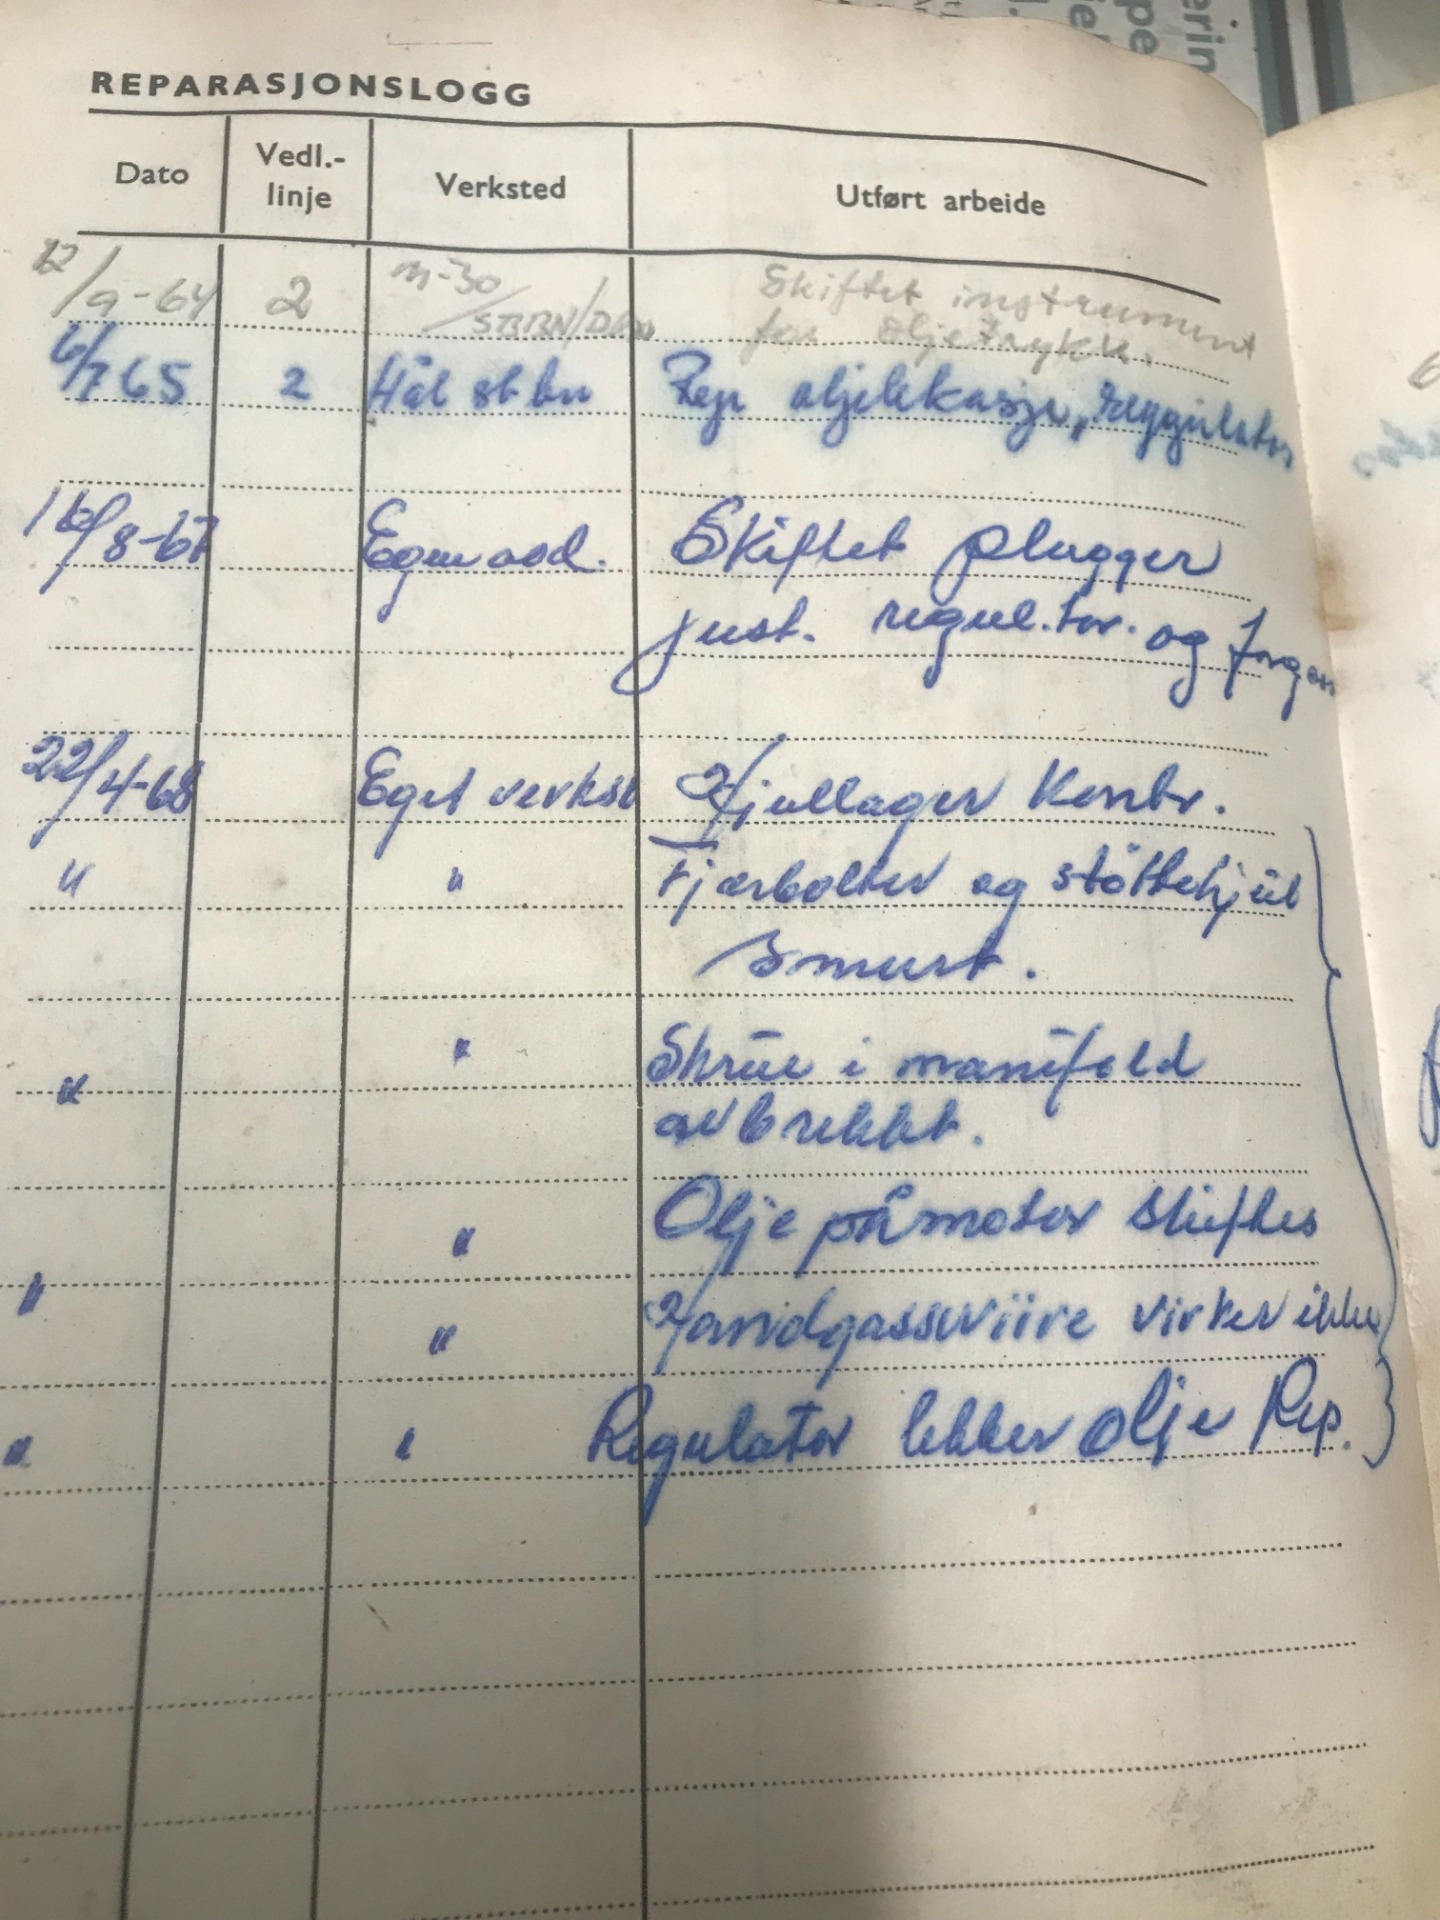 REPARASJONSLOGG
Dato Vedl.-linje Verksted Utført arbeide
12/9-64 2 m-30 Skiftet instrument
for oljetrykk.
6/7 65 2 Hål st bn Rep oljelekkasje, reggulator
16/8-67 Egen avd. Skiftet plugger
just. regul.tor. og
22/4-68 Eget verkst Hjullager Kontr.
" " Fjærbolter og støttehjul
smurt.
" " Skrue i manifold
avbrekkt.
" Olje på motor skiftes
" " Handgasswiire virker ikke
" " Regulator lekker olje Rep.